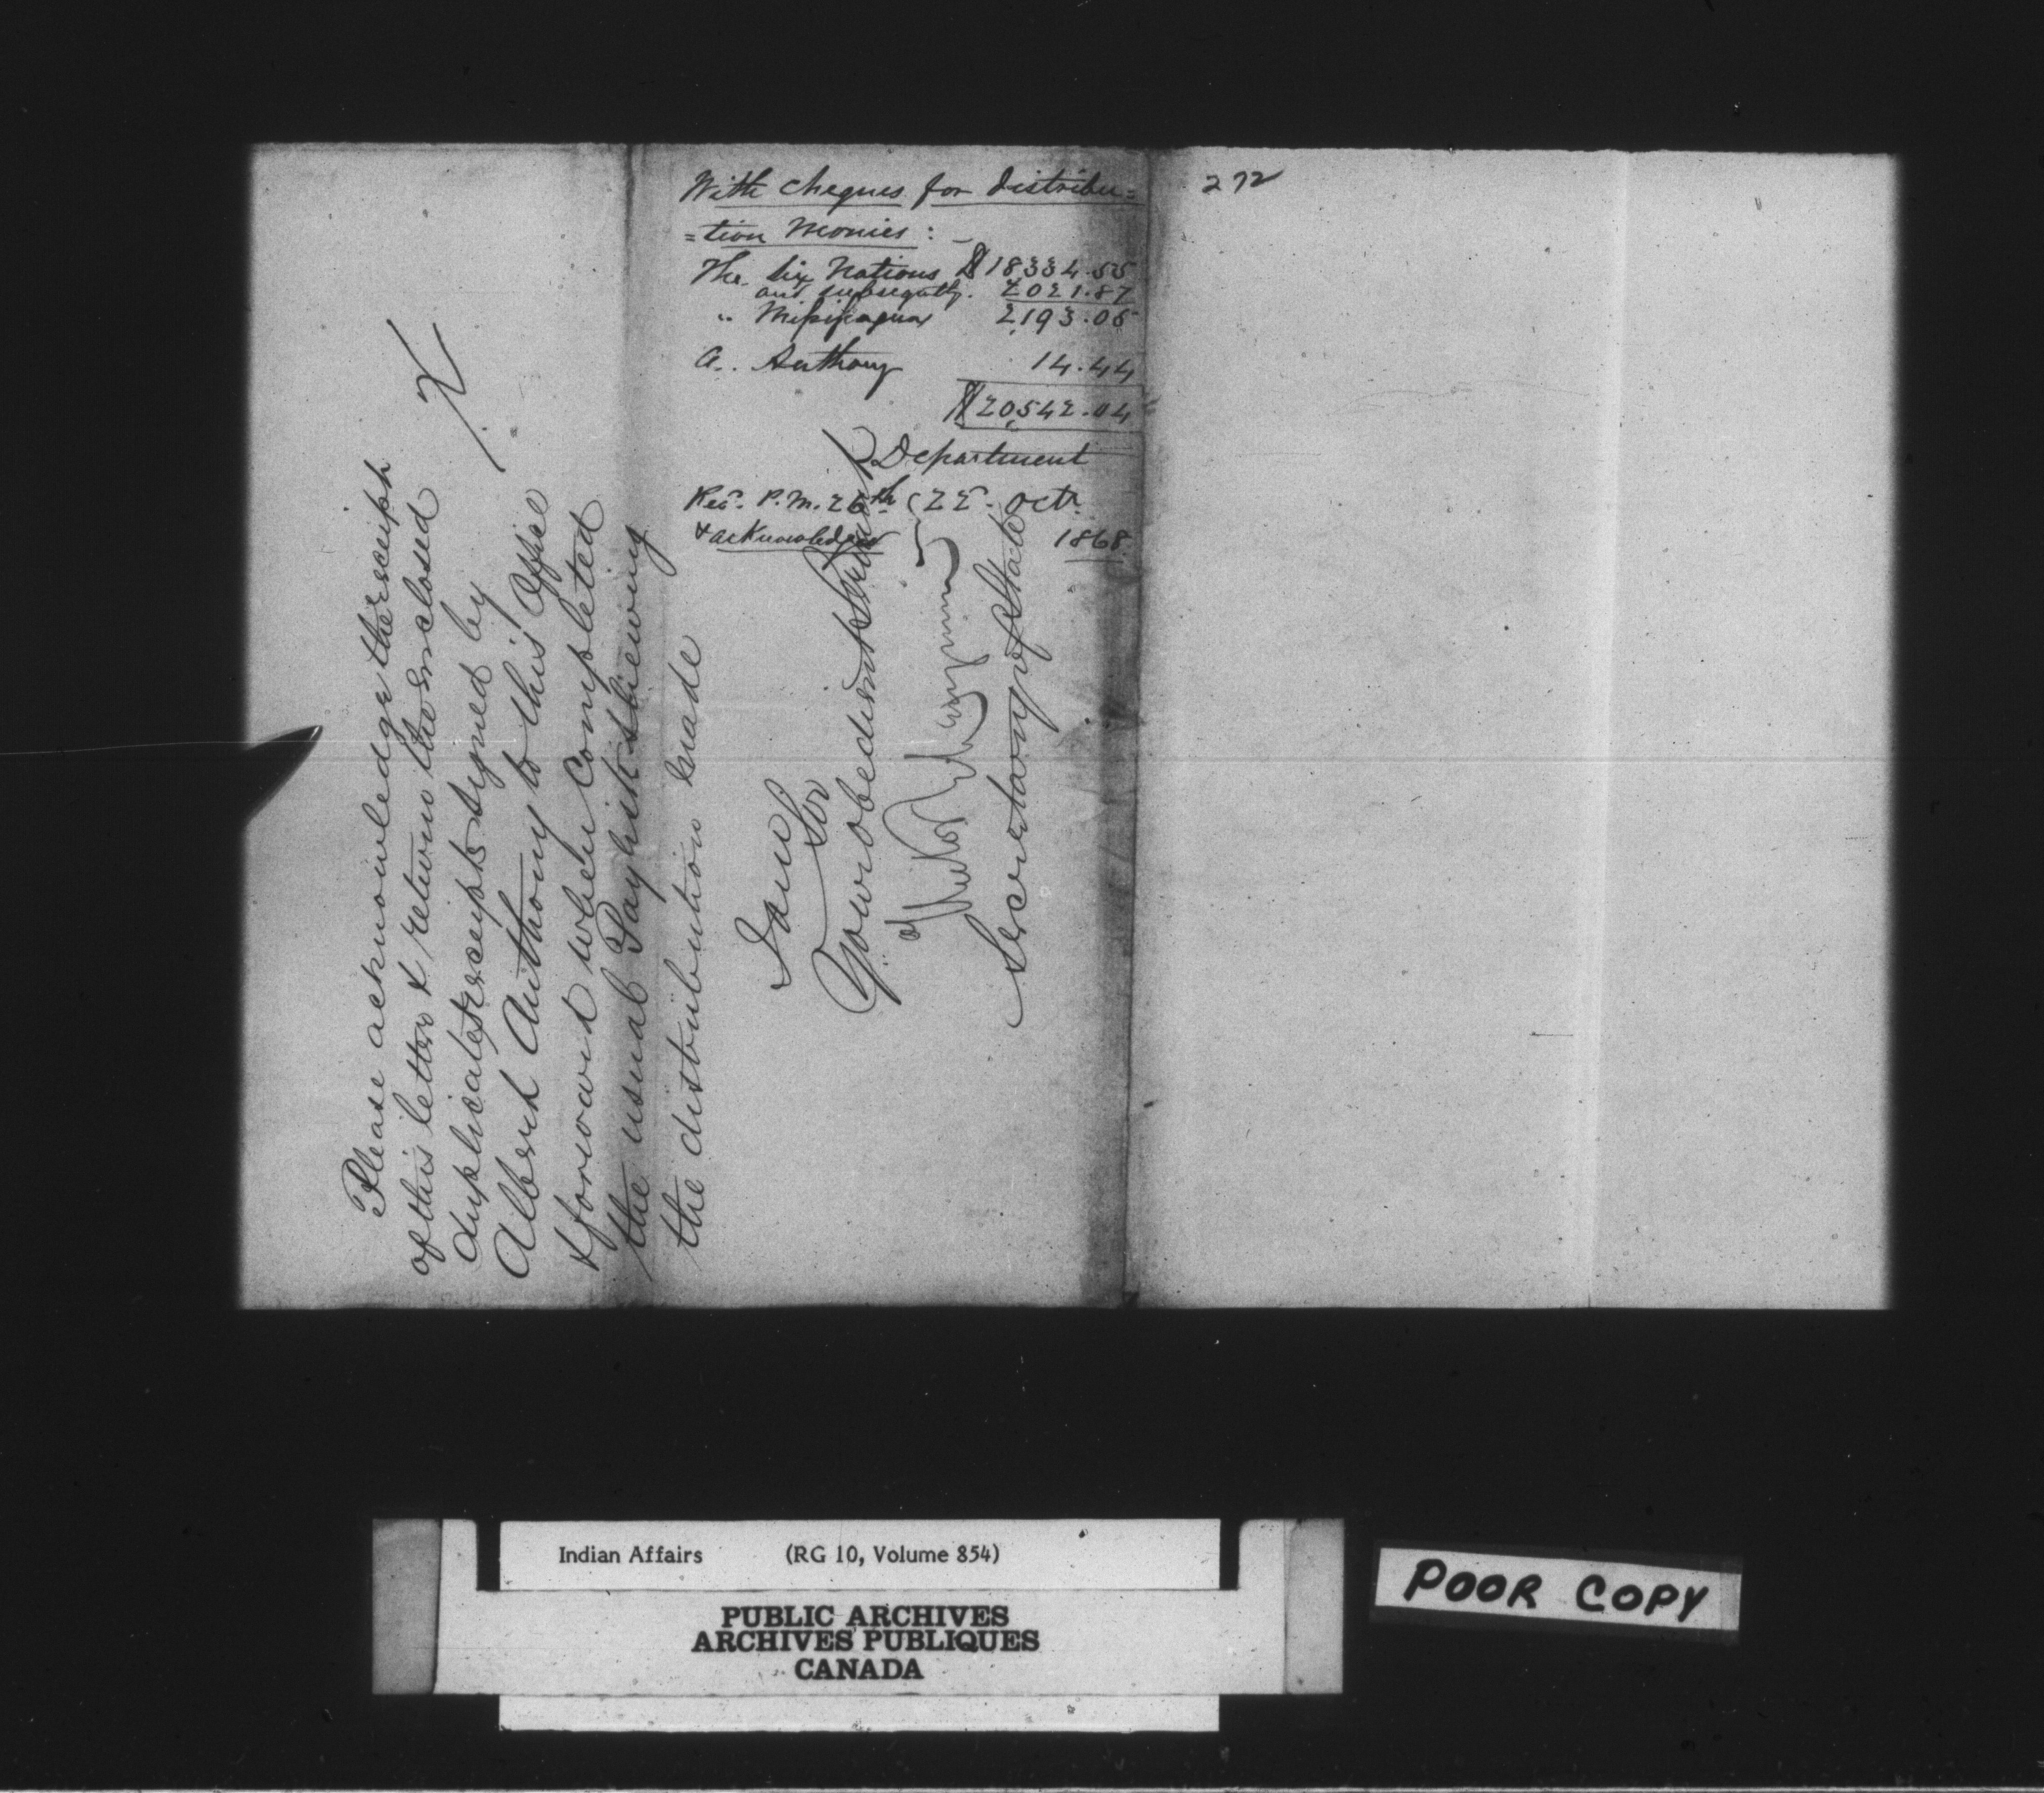 With cheques for distribu=
=tion Monies: -
The Six Nations $18334.55
and subsequetly. 2021.87
" Missisaguas 2,193.05
A. Anthony 14.44
$20,542.04
Department
22d. Octr.
1868.
Recd. P.M. 26th
& acknowledged
272
Please acknowledge the receipt
of this letter & return the enclosed
duplicate receipts signed by
Albert Anthony to this Office
& forward when completed
the usual Paylist shewing
the distribution made
I am
Sir
Your obedient Servant
Secretary of State
Indian Affairs (RG 10, Volume 854)
PUBLIC ARCHIVES
ARCHIVES PUBLIQUES
CANADA
POOR COPY